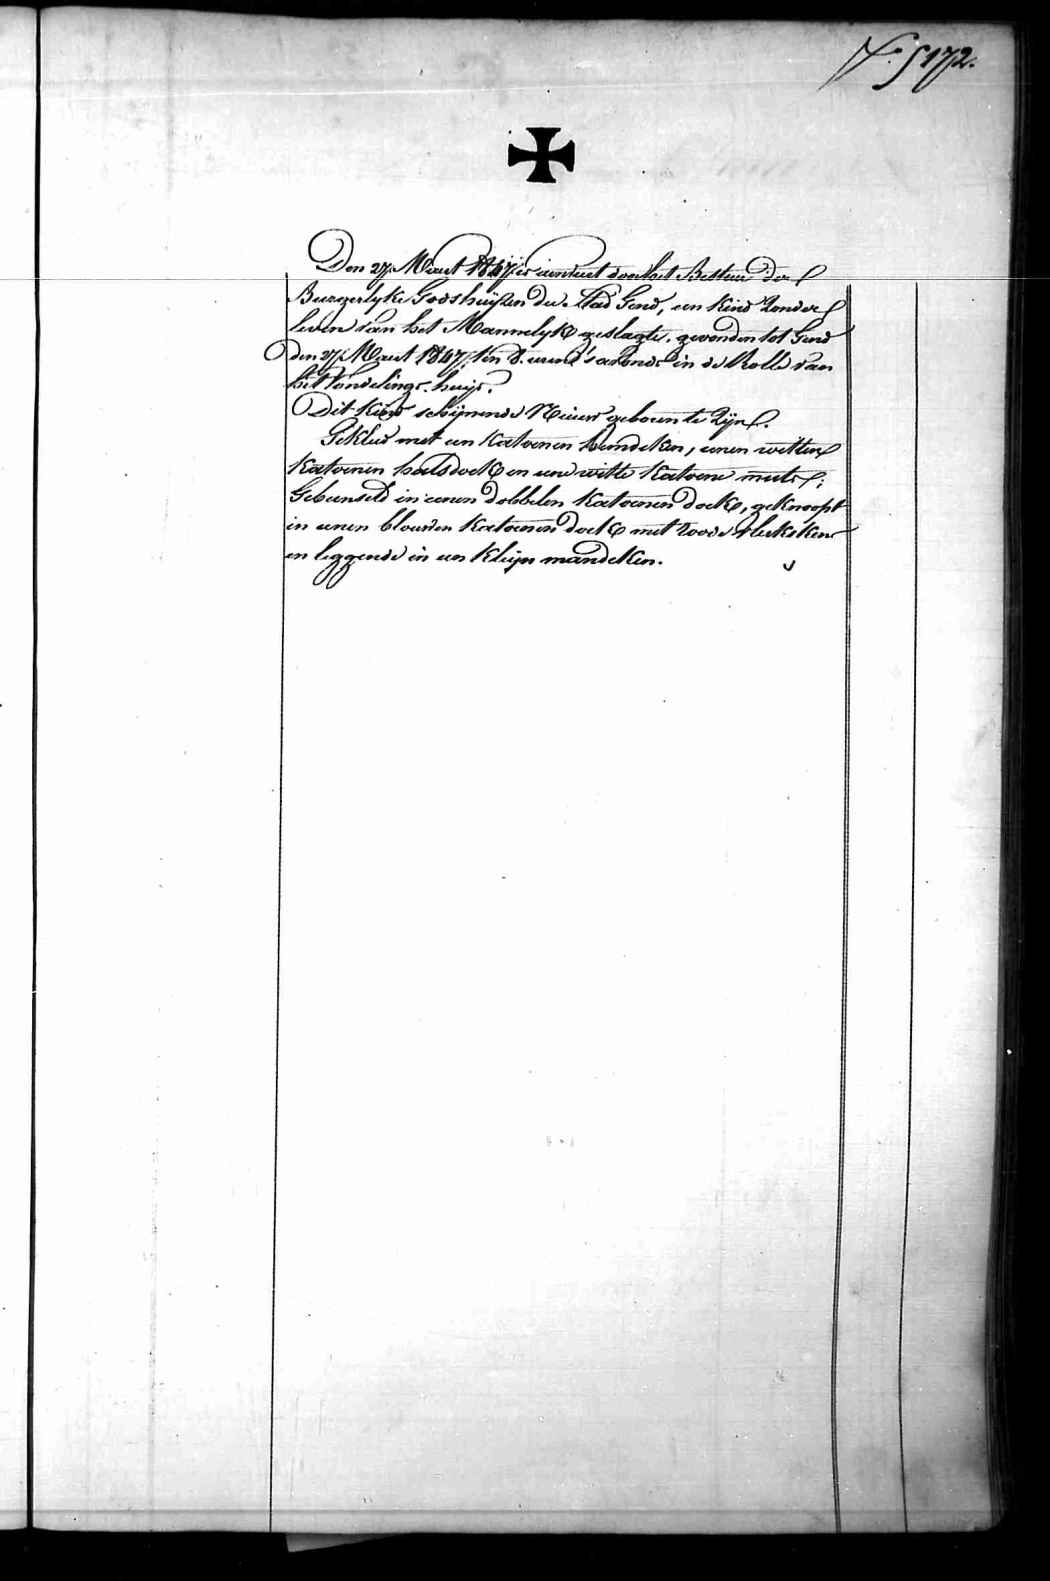 N.° 5172.
Den 27 Maart 1847 is aenveert door het Bestuur der
Burgerlyke Godshuijzen der Stad Gend, een Kind zonder
leven van het Mannelyk geslagte, gevonden tot Gend
den 27 Maart 1847, ten 8. uren 's avonds in de Rolle van
het Vondelings-huijs.
Dit Kind schijnende Nieuw geboren te Zijn.
Gekleed met een Katoenen hemdeken, eenen witten
Katoenen halsdoek en eene witte Katoene muts;
Gebunseld in eenen dobbelen Katoenen doek, geknoopt
in eenen blauwen Katoenen doek met roode vlekskens
en leggende in een kleyn mandeken.